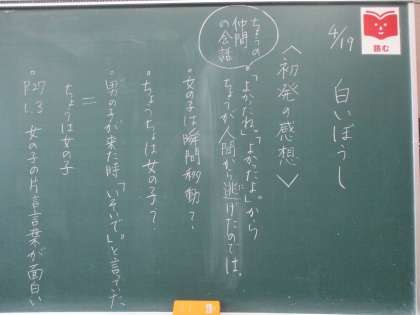 読む
4/19
白いぼうし
〈初発の感想〉
ちょうの
仲間
の会話
・「よかったね。」「よかったよ。」から
ちょうが人間から逃げたのでは。
・女の子は瞬間移動？
・ちょうちょは女の子？
・男の子が来た時「いそいで。」と言っていた
＝
ちょうは女の子
・P27
L.3 女の子の片言言葉が面白い